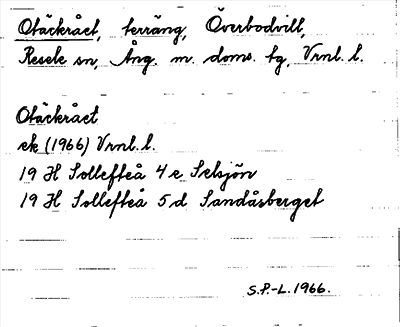 Otäckrået, terräng, Överbodvill,
Resele sn, Ång. m. doms. tg, Vrnl. l.
Otäckrået
ek (1966) Vrnl. l.
19 H Sollefteå 4 e Selsjön
19 H Sollefteå 5 d Sandåsberget
S.P.-L. 1966.